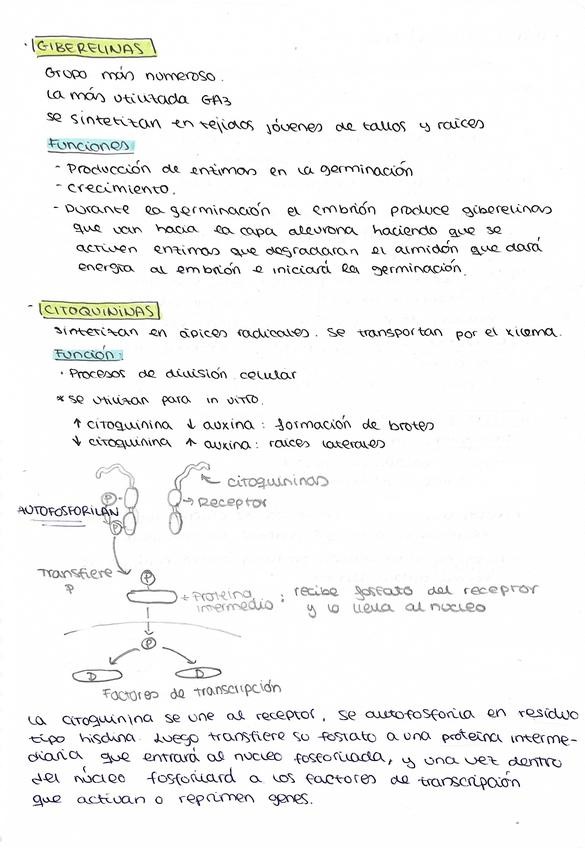 · GIBERELINAS
Grupo más numeroso.
La más utilizada GA3
se sintetizan en tejidos jóvenes de tallos y raíces
Funciones
- Producción de enzimas en la germinación
- crecimiento.
- Durante la germinación el embrión produce giberelinas
que van hacia la capa aleurona haciendo que se
activen enzimas que degradaran el almidón que dará
energía al embrión e iniciará la germinación.
- CITOQUININAS
sintetizan en ápices radicales. Se transportan por el xilema.
Función:
· Procesos de división celular
* se utilizan para in vitro.
↑ citoquinina ↓ auxina: formación de brotes
↓ citoquinina ↑ auxina: raíces laterales
← citoquininas
P → Receptor
AUTOFOSFORILAN P
Transfiere P
P
→ Proteína intermedio: recibe fosfato del receptor
y lo lleva al núcleo
P
D D
Factores de transcripción
La citoquinina se une al receptor, se autofosforila en residuo
tipo hisdina. Luego transfiere su fosfato a una proteína interme-
diaria que entrará al nucleo fosforilada, y una vez dentro
del núcleo fosforilará a los factores de transcripción
que activan o reprimen genes.